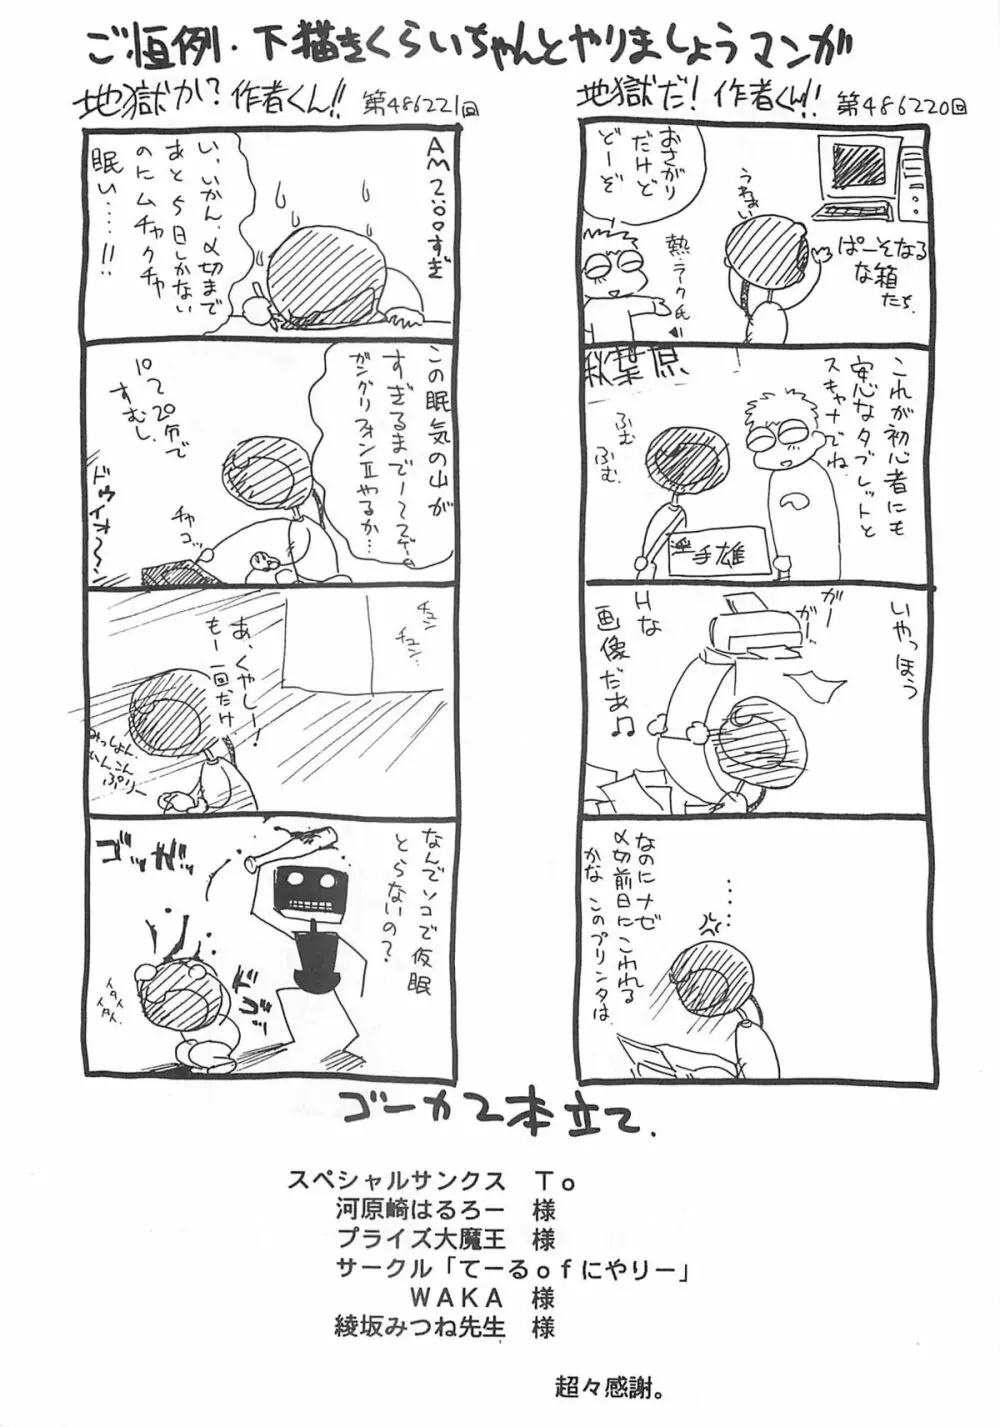 ご恒例・下描きくらいちゃんとやりましょうマンガ
地獄だ!作者くん!! 第486220回
おさがり
だけど
どーぞ
うわぁい
熱・ラーク氏
ぱーそなる
な箱
たち.
秋葉原
これが初心者にも
安心なタブレットと
スキャナでね.
ふむ
ふむ.
手雄
いやっほう
ガー
ガー
Hな
画像だぁ♫
なのにナゼ
〆切前日にこわれる
かな このプリンタは.
……
地獄か?作者くん!! 第486221回
AM2:00すぎ
い、いかん、〆切まで
あと5日しかない
のにムチャクチャ
眠い……!!
この眠気の山が
すぎるまでーーってゲー
ガングリフォンⅡやるか…
10〜20分で
すむし.
チャコッ
ドゥイオ〜ン
チュン
チュン…
あ、くやしー!
もー一回だけ
みっしょん.
いんこん
ぷりー
なんでソコで仮眠
とらないの?
ゴッガッ
イタイ
イタイ.
ゴーカ2本立て.
スペシャルサンクス To
河原崎はるろー 様
プライズ大魔王 様
サークル「てーるofにやりー」
WAKA 様
綾坂みつね先生 様
超々感謝。